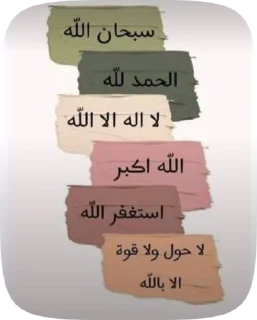 سبحان الله
الحمد لله
لا اله الا الله
الله اكبر
استغفر الله
لا حول ولا قوة
الا بالله